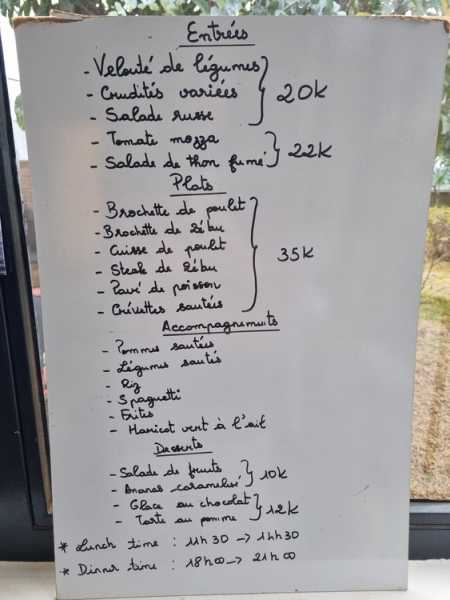 Entrées
- Velouté de légumes
- Crudités variées
- Salade russe
20K
- Tomate mozza
- Salade de thon fumé
22K
Plats
- Brochette de poulet
- Brochette de Zébu
- Cuisse de poulet
- Steak de Zébu
- Pavé de poisson
- Crevettes sautées
35K
Accompagnements
- Pommes sautées
- Légumes sautés
- Riz
- Spaguetti
- Frites
- Haricot vert à l'ail
Desserts
- Salade de fruits
- Ananas caramelisé
10K
- Glace au chocolat
- Tarte au pomme
12K
* Lunch time : 11h30 -> 14h30
* Dinner time : 18h00 -> 21h00